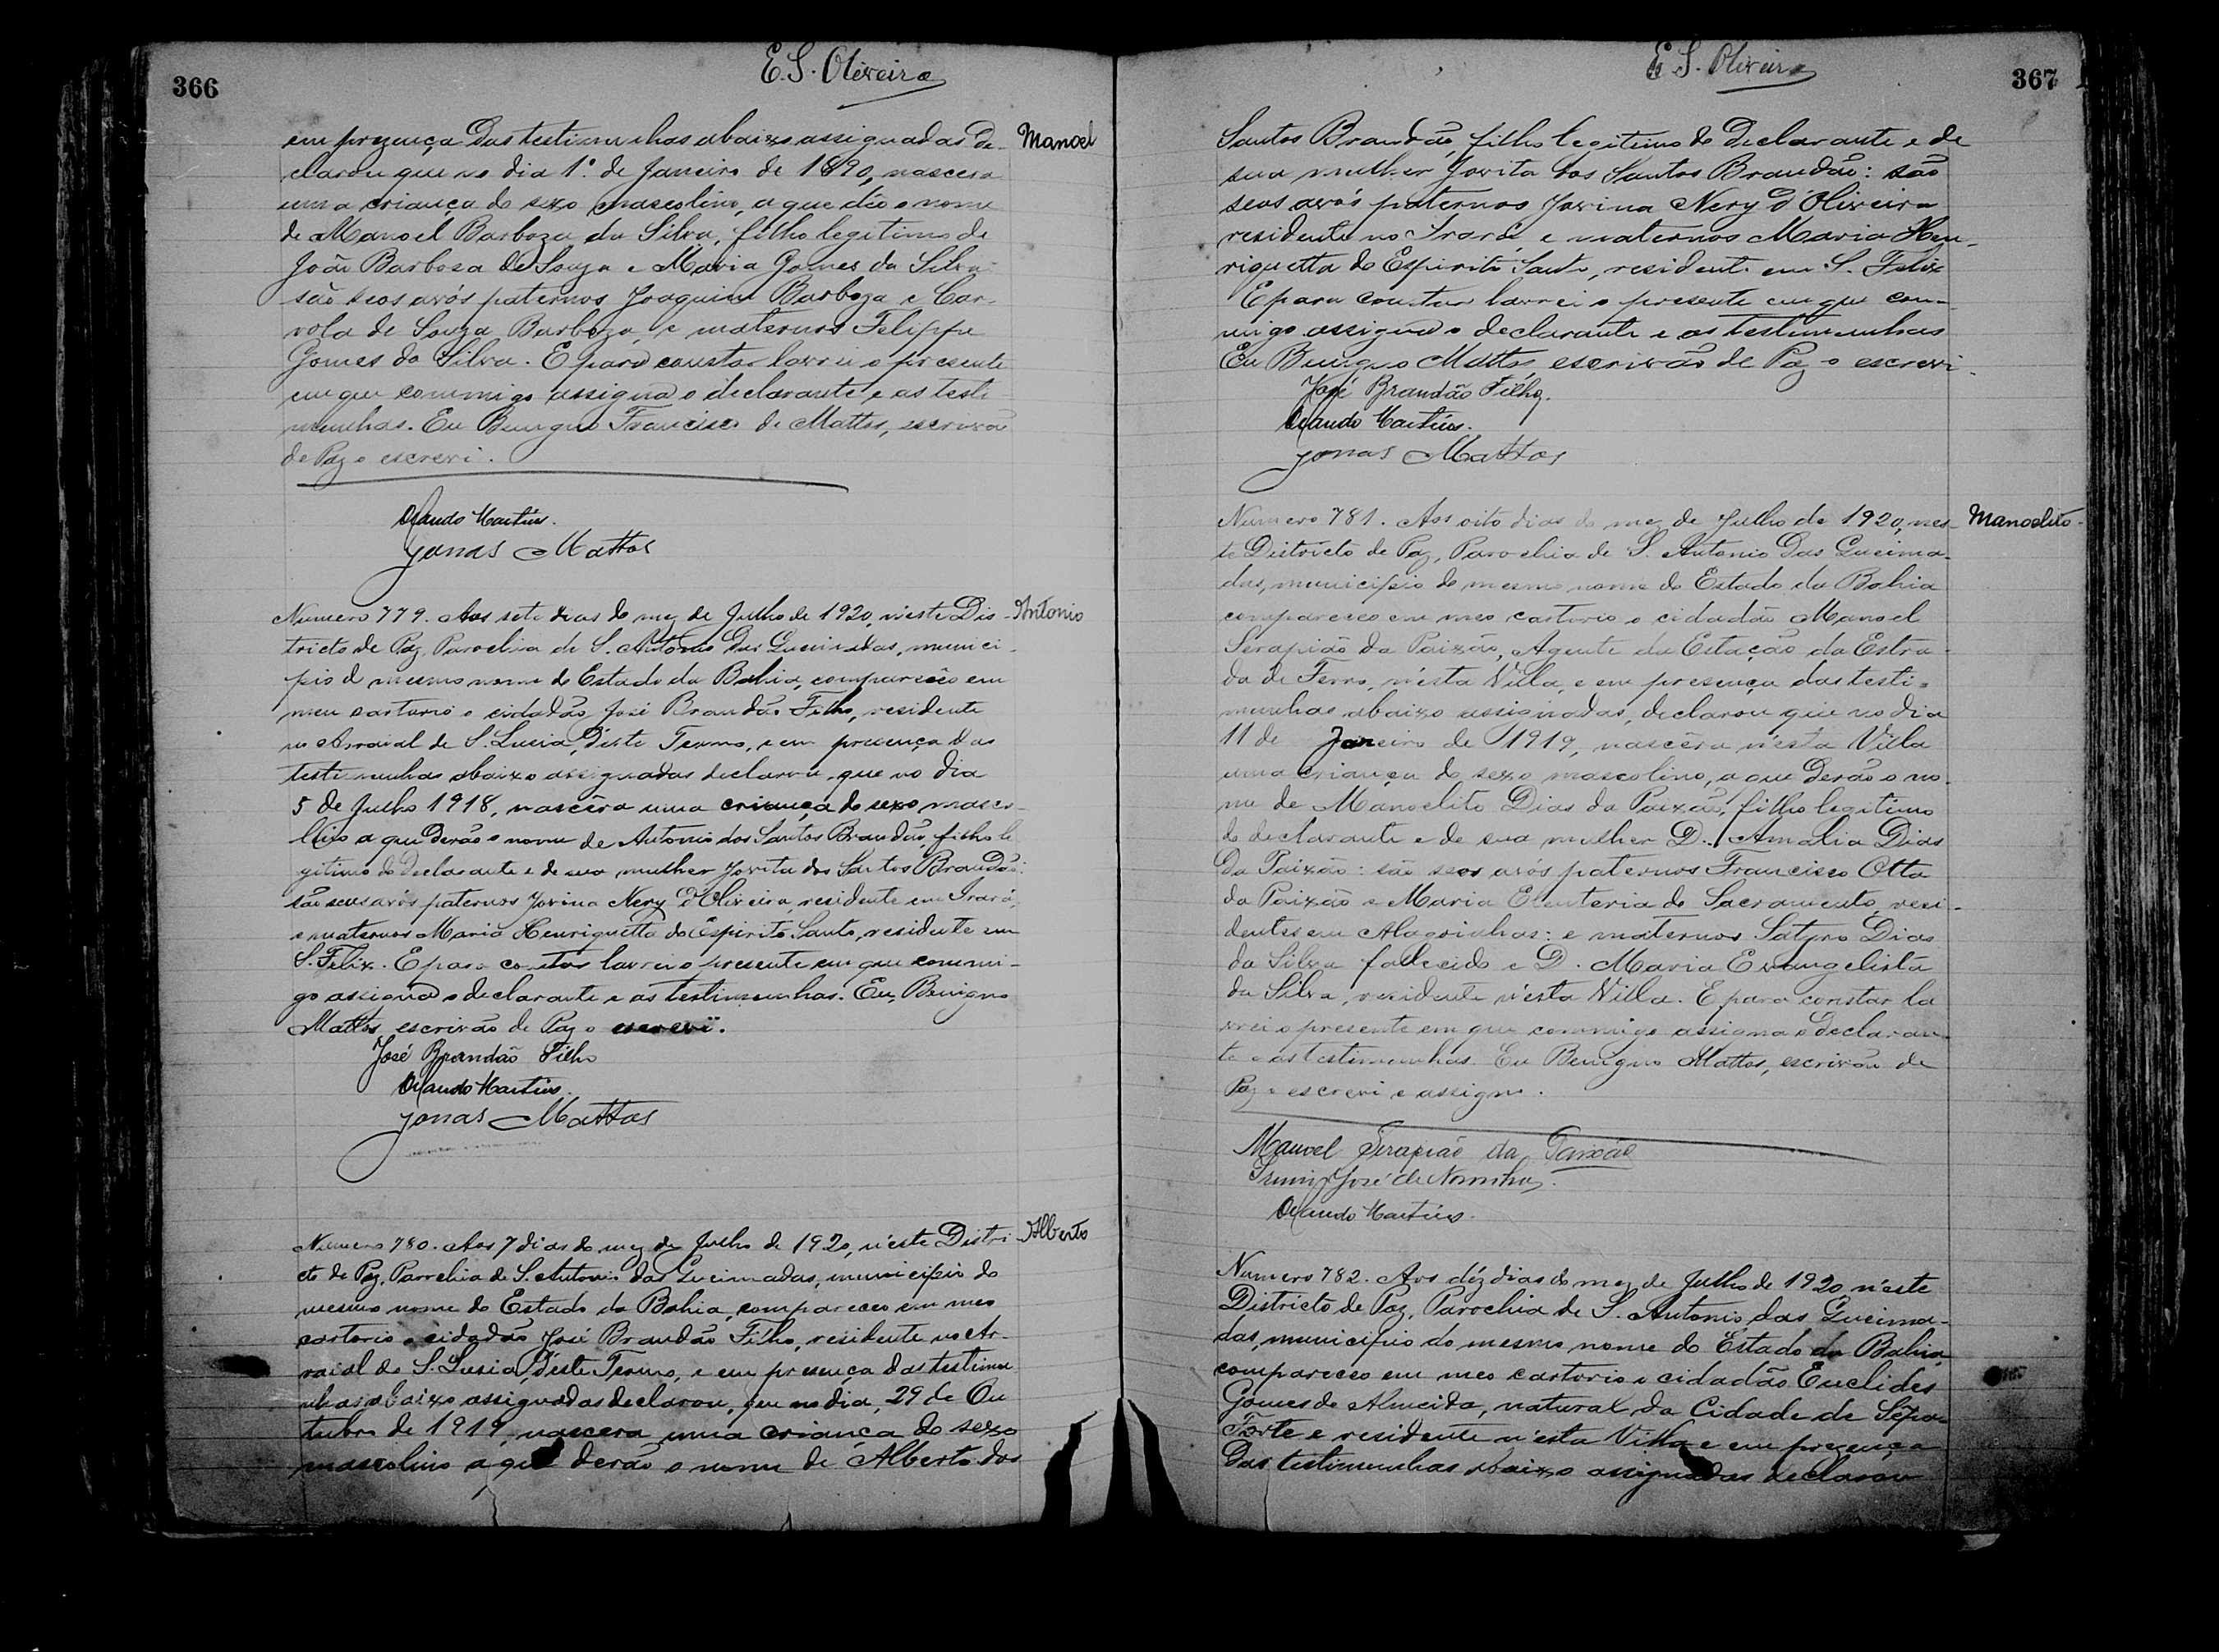 366
E. S. Oliveira
em prezença das testimunhas abaixo assignadas de-
Manoel
clarou que no dia 1º de Janeiro de 1890, nascera
uma criança do sexo mascolino, a que dão o nome
de Manoel Barboza da Silva, filho legitimo de
João Barbosa de Souza e Maria Gomes da Silva
são seos avós paternos Joaquim Barboza e Car-
rola de Souza Barboza, e maternos Felippa
Gomes da Silva. E para constar lavrei o presente
em que commigo assigna o declarante e as testi-
munhas. Eu Benigno Francisco de Mattos, escrivão
de Paz o escrevi.
Martins.
Jonas Mattos
Numero 779. Aos sete dias do mez de Julho de 1920, n'este Dis-
Antonio
tricto de Paz, Parochia de S. Antonio das Queimadas, munici-
pio do mesmo nome do Estado da Bahia, compareceo em
meu cartorio o cidadão José Brandão Filho, residente
no Arraial de S. Luzia, d'este Termo, e em presença das
testimunhas abaixo assignadas declarou, que no dia
5 de Julho 1918, nascêra uma criança do sexo masco-
lino a que derão o nome de Antonio dos Santos Brandão, filho le
gitimo do declarante e de sua mulher Jovita dos Santos Brandão:
são seus avós paternos Jovina Nery d'Oliveira, residente em Irará,
e maternos Maria Henriquetta do Espirito Santo, residente em
S. Felix. E para constar lavrei o presente em que commi-
go assigna o declarante e as testimunhas. Eu, Benigno
Mattos, escrivão de Paz o escrevi.
José Brandão Filho
Martins.
Jonas Mattos
Numero 780. Aos 7 dias do mez de Julho de 1920, n'este Distri
Alberto
cto de Paz, Parochia de S. Antonio das Queimadas, municipio do
mesmo nome do Estado da Bahia, compareceo em meo
cartorio o cidadão José Brandão Filho, residente no Ar-
raial de S. Luzia, d'este Termo, e em presença das testimu
nhas abaixo assignadas declarou, que no dia, 29 de Ou
tubro de 1919, nascera uma criança do sexo
mascolino a que derão o nome de Alberto dos
E. S. Oliveira
367
Santos Brandão, filho legitimo do Declarante e de
sua mulher Jovita dos Santos Brandão: são
seus avós paternos Jovina Nery d'Oliveira
residente no Irará, e maternos Maria Hen-
riquetta do Espirito Santo, residente em S. Felix
E para constar lavrei o presente em que com-
migo assigna o declarante e as testimunhas
Eu Benigno Mattos, escrivão de Paz o escrevi.
José Brandão Filho.
Martins.
Jonas Mattos
Numero 781. Aos oito dias do mez de Julho de 1920, nes-
Manoelito
te Districto de Paz, Parochia de S. Antonio das Queima-
das, municipio do mesmo nome do Estado da Bahia
compareceo em meo cartorio o cidadão Manoel
Serapião da Paixão, Agente da Estação da Estra-
da de Ferro, n'esta Villa, e em presença das testi-
munhas abaixo assignadas, declarou que no dia
11 de Janeiro de 1919, nascêra n'esta Villa
uma criança do sexo mascolino, a que derão o no-
me de Manoelito Dias da Paixão, filho legitimo
do declarante e de sua mulher D. Amalia Dias
da Paixão: são seos avós paternos Francisco Otta
da Paixão e Maria Eleuteria do Sacramento, resi-
dentes em Alagoinhas: e maternos Satyro Dias
da Silva fallecido e D. Maria Evangelista
da Silva, residente n'esta Villa. E para constar la
vrei o presente em que commigo assigna o Declaran-
te e as testimunhas. Eu Benigno Mattos, escrivão de
Paz o escrevi e assigno.
Manoel Serapião da Paixão
José de
Martins.
Numero 782. Aos déz dias do mez de Julho de 1920, n'este
Districto de Paz, Parochia de S. Antonio das Queima-
das, municipio do mesmo nome do Estado da Bahia,
compareceo em meo cartorio o cidadão Euclides
Gomes de Almeida, natural da Cidade de
Forte e residente n'esta Villa e em prezença
das testimunhas abaixo assignadas declarou